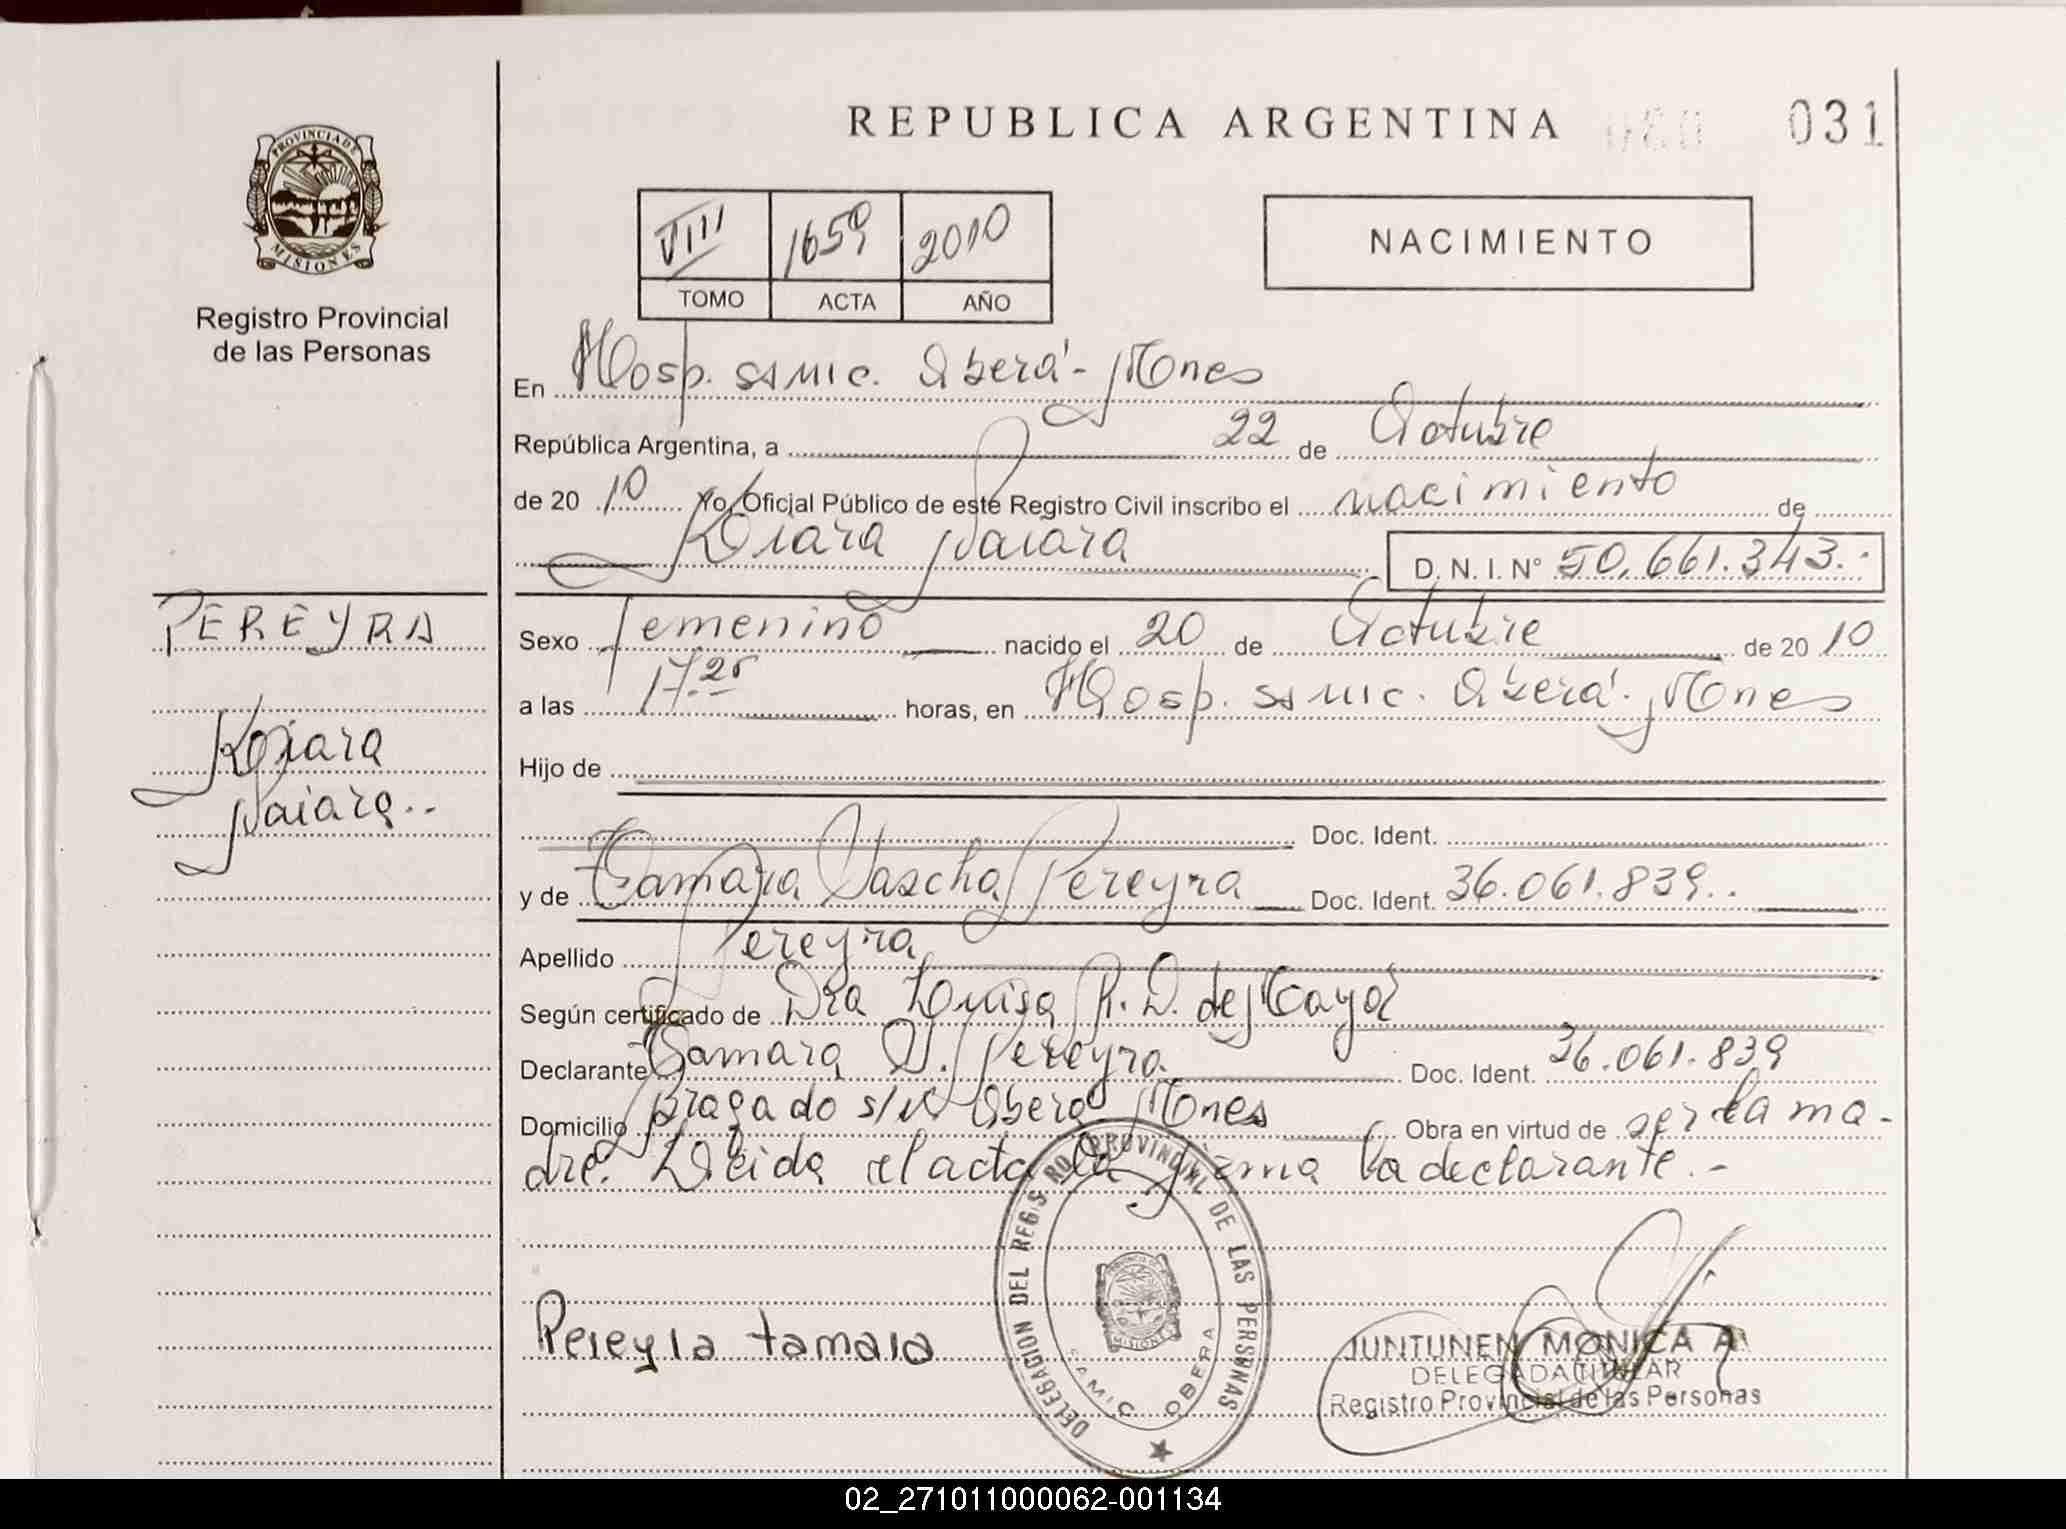 REPUBLICA ARGENTINA 031
PROVINCIA DE MISIONES
Registro Provincial
de las Personas
VIII 1659 2010
TOMO ACTA AÑO
NACIMIENTO
En Hosp. SAMIC. Oberá - Mnes
República Argentina, a 22 de Octubre
de 2010 Yo, Oficial Público de este Registro Civil inscribo el nacimiento de
Kiara Naiara D. N. I. Nº 50.661.343.-
PEREYRA
Kiara
Naiara..
Sexo femenino nacido el 20 de Octubre de 2010
a las 17.25 horas, en Hosp. SAMIC. Oberá. Mnes
Hijo de
Doc. Ident.
y de Tamara Sascha Pereyra Doc. Ident. 36.061.839..
Apellido Pereyra
Según certificado de Dra Luisa R. D. de
Declarante Tamara S. Pereyra. Doc. Ident. 36.061.839
Domicilio Bragado s/n Oberá Mnes Obra en virtud de ser la ma-
dre. Leida el acta la firma la declarante.-
DELEGACION DEL REGISTRO PROVINCIAL DE LAS PERSONAS
SAMIC OBERA
MISIONES
Pereyra tamara
JUNTUNEN MONICA A
DELEGADA TITULAR
Registro Provincial de las Personas
02_271011000062-001134